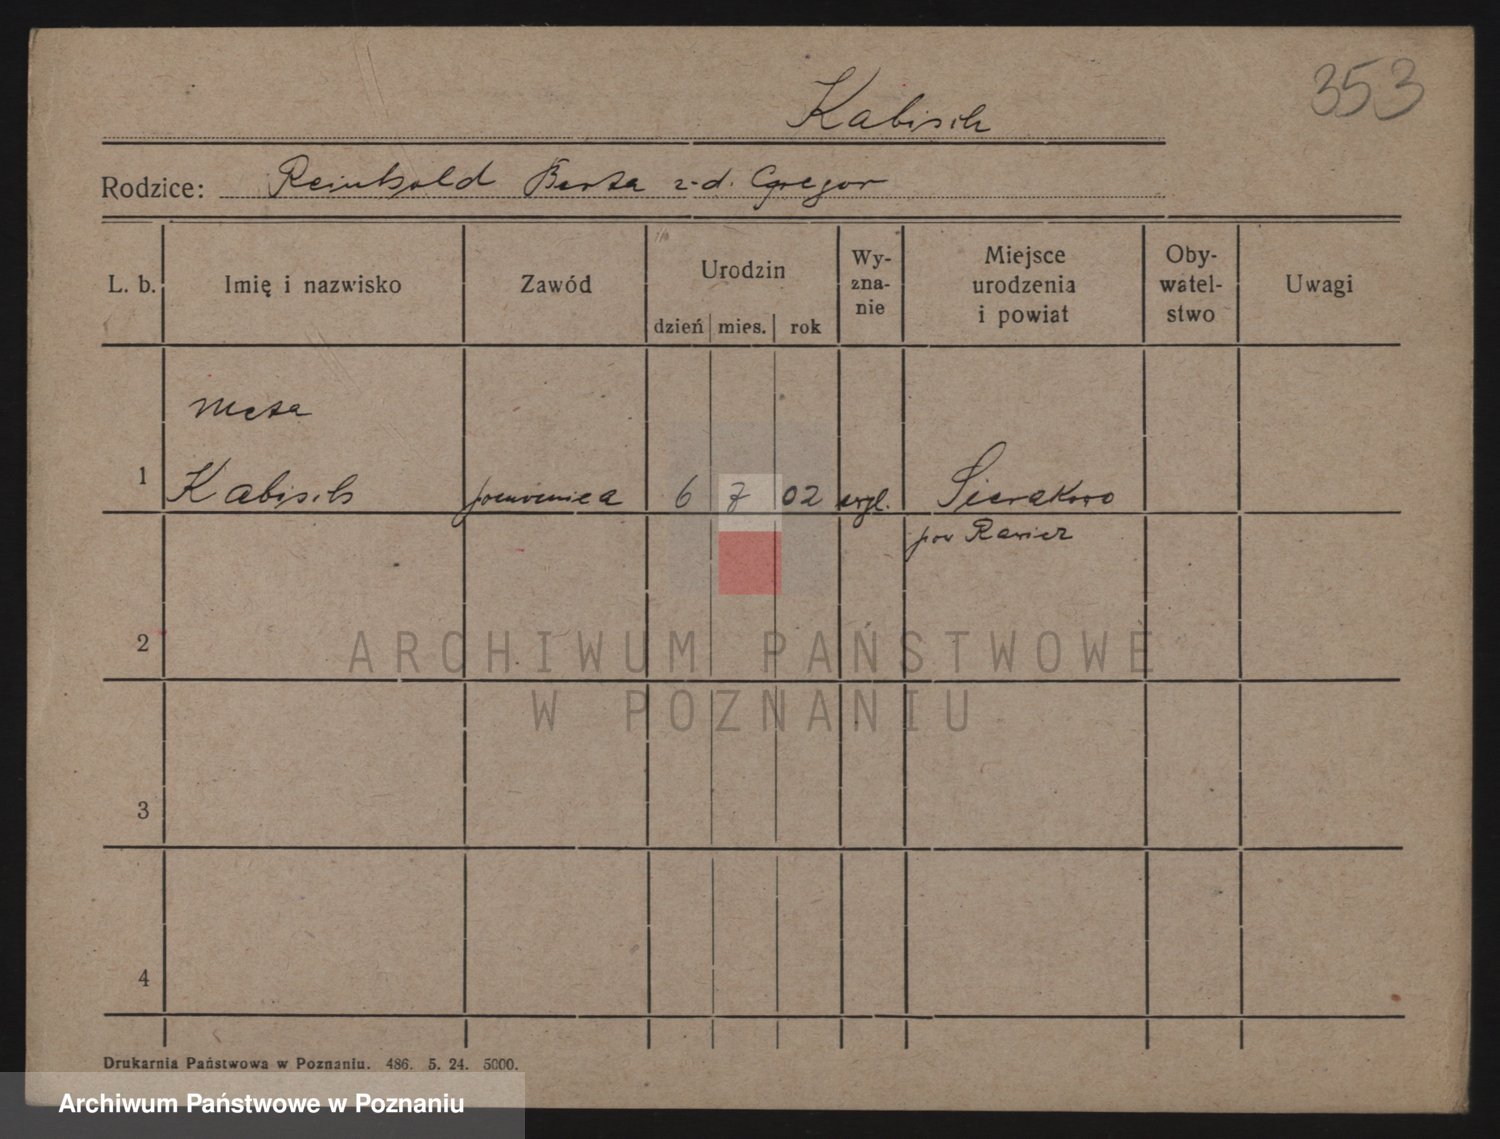 353
Kabisch
Rodzice: Reinhold Berta z-d. Gregor
L. b. Imię i nazwisko Zawód Urodzin dzień mies. rok Wy-zna-nie Miejsce urodzenia i powiat Oby-watel-stwo Uwagi
Meta
1 Kabisch 6 7 02 ewgl. Sierakowo
pow Rawicz
2
3
4
ARCHIWUM PAŃSTWOWE
W POZNANIU
Drukarnia Państwowa w Poznaniu. 486. 5. 24. 5000.
Archiwum Państwowe w Poznaniu